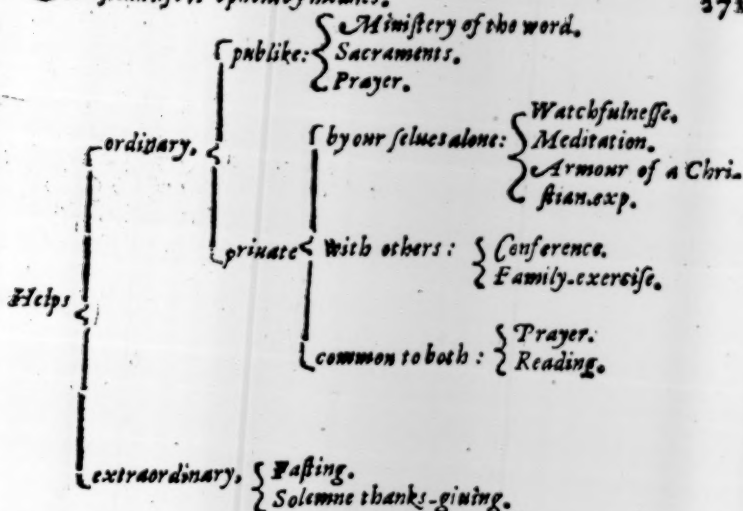 271
publike: { Miniſtery of the word.
Sacraments.
Prayer.
ordinary,
by our ſelues alone: { Watchfulneſſe.
Meditation.
Armour of a Chri-
ſtian.exp.
priuate
With others: { Conference.
Family-exerciſe.
Helps
common to both: { Prayer.
Reading.
extraordinary, { Faſting.
Solemne thanks-giuing.